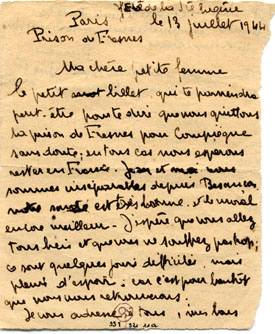 fête de la St Eugène
Paris le 13 juillet 1944
Prison de Fresnes
Ma chère petite femme
le petit mot billet, qui te parviendra
peut-être pour te dire que nous quittons
la prison de Fresnes pour Compiègne
sans doute; en tous cas nous espérons
rester en France. Jean et moi nous
sommes inséparables depuis Besançon
notre santé est très bonne, et le moral
encore meilleur. J'espère que vous allez
tous bien et que vous ne souffrez pas trop;
ce sont quelques jours difficiles, mais
pleins d'espoir; car c'est pour bientôt
que nous nous retrouverons.
Je vous adresse à tous, mes bons